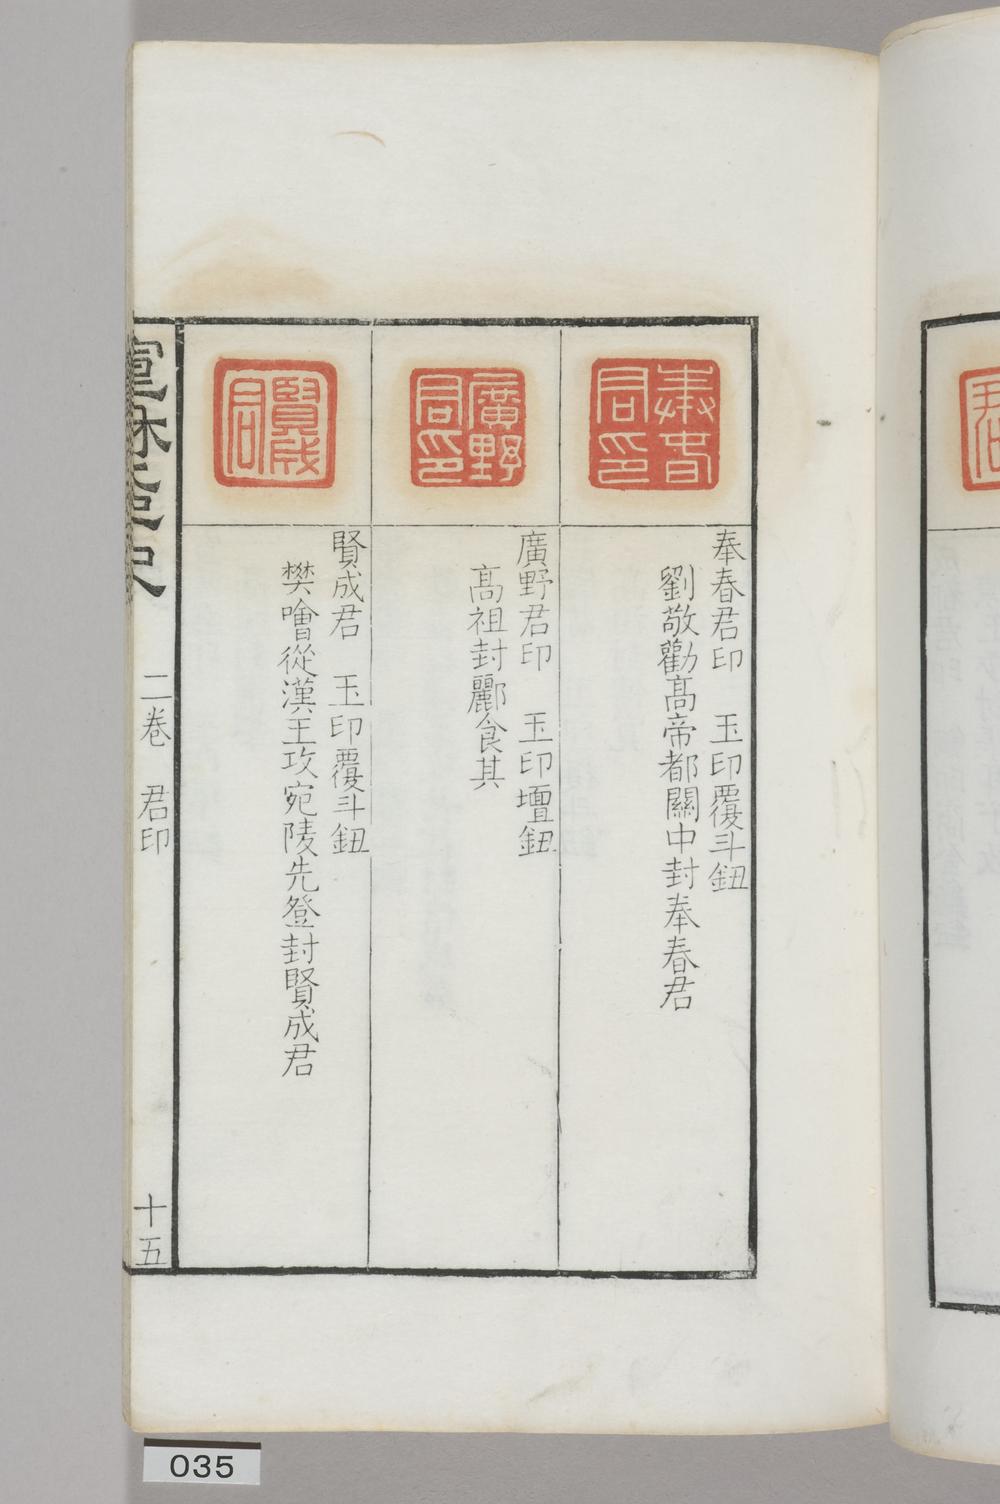 奉春君印
奉春君印　玉印覆斗鈕
劉敬勸髙帝都關中封奉春君
廣野君印
廣野君印　玉印壇鈕
髙祖封酈食其
賢成君
賢成君　玉印覆斗鈕
樊噲從漢王攻宛陵先登封賢成君
二卷　君印
十五
君
035